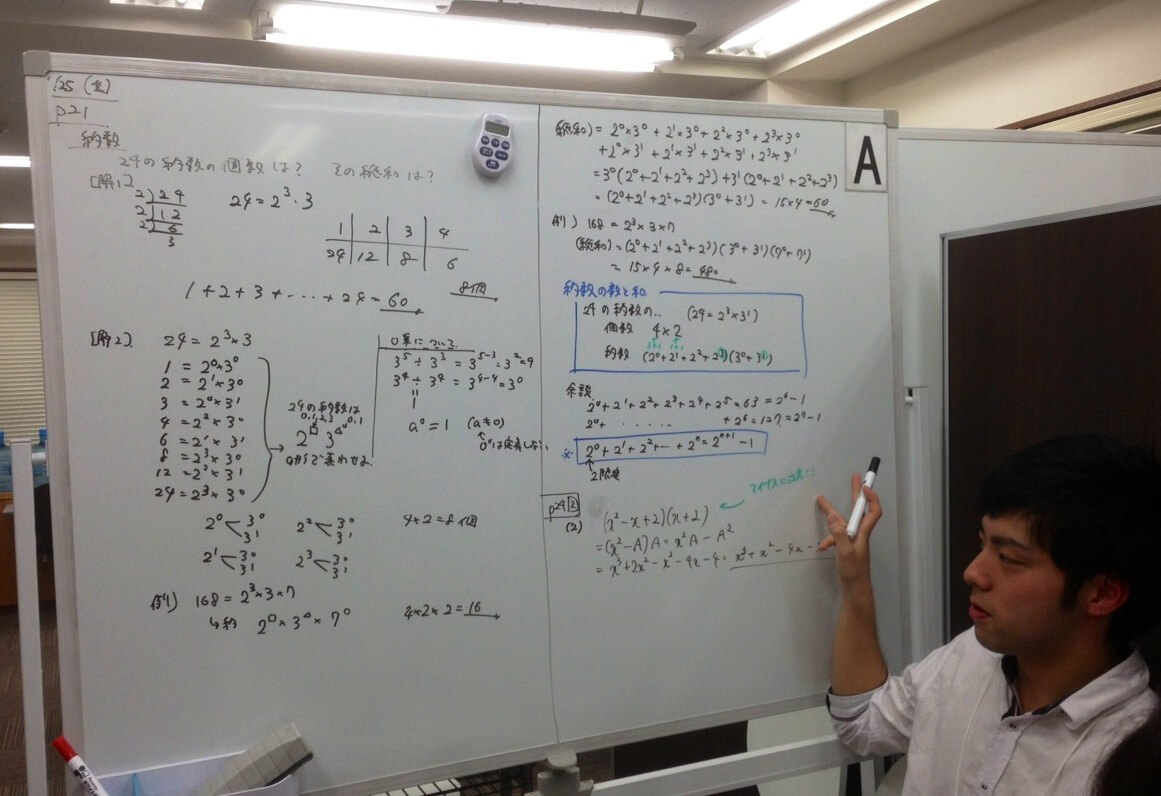 1/25 (土)
p21
約数
24の約数の個数は? その総和は?
[解1]
2)24
2)12
2)6
3
24=2³・3
1 | 2 | 3 | 4
24 | 12 | 8 | 6
8個
1+2+3+……+24=60
[解2] 24=2³×3
1 = 2⁰×3⁰
2 = 2¹×3⁰
3 = 2⁰×3¹
4 = 2²×3⁰
6 = 2¹×3¹
8 = 2³×3⁰
12 = 2²×3¹
24 = 2³×3⁰
24の約数は
0,1,2,3 0,1
2□ 3△
の形で表わせる。
0乗について
3⁵÷3³=3⁵⁻³=3²=9
3⁴÷3⁴=3⁴⁻⁴=3⁰
=
1
a⁰=1 (a≠0)
2⁰<3⁰ 3¹
2²<3⁰ 3¹
4×2=8個
2¹<3⁰ 3¹
2³<3⁰ 3¹
例) 168=2³×3×7
↳約 2□×3△×7○
4×2×2=16
(総和)=2⁰×3⁰+2¹×3⁰+2²×3⁰+2³×3⁰
+2⁰×3¹+2¹×3¹+2²×3¹+2³×3¹
=3⁰(2⁰+2¹+2²+2³)+3¹(2⁰+2¹+2²+2³)
=(2⁰+2¹+2²+2³)(3⁰+3¹)=15×4=60
例) 168=2³×3×7
(総和)=(2⁰+2¹+2²+2³)(3⁰+3¹)(7⁰+7¹)
=15×4×8=480
約数の数と和
24の約数の.. (24=2³×3¹)
個数 4×2
3+1 1+1
約数 (2⁰+2¹+2²+2³)(3⁰+3¹)
余談
2⁰+2¹+2²+2³+2⁴+2⁵=63=2⁶-1
2⁰+ ‥‥‥ +2⁶=127=2⁷-1
※ 2⁰+2¹+2²+…+2ⁿ=2ⁿ⁺¹-1
↑
2限定
p24 2
(2) (x²-x+2)(x+2)
=(x²-A)A=x²A-A²
=x³+2x²-x²-4x-4=x³+x²-4x-
マイナスに注意!!
A